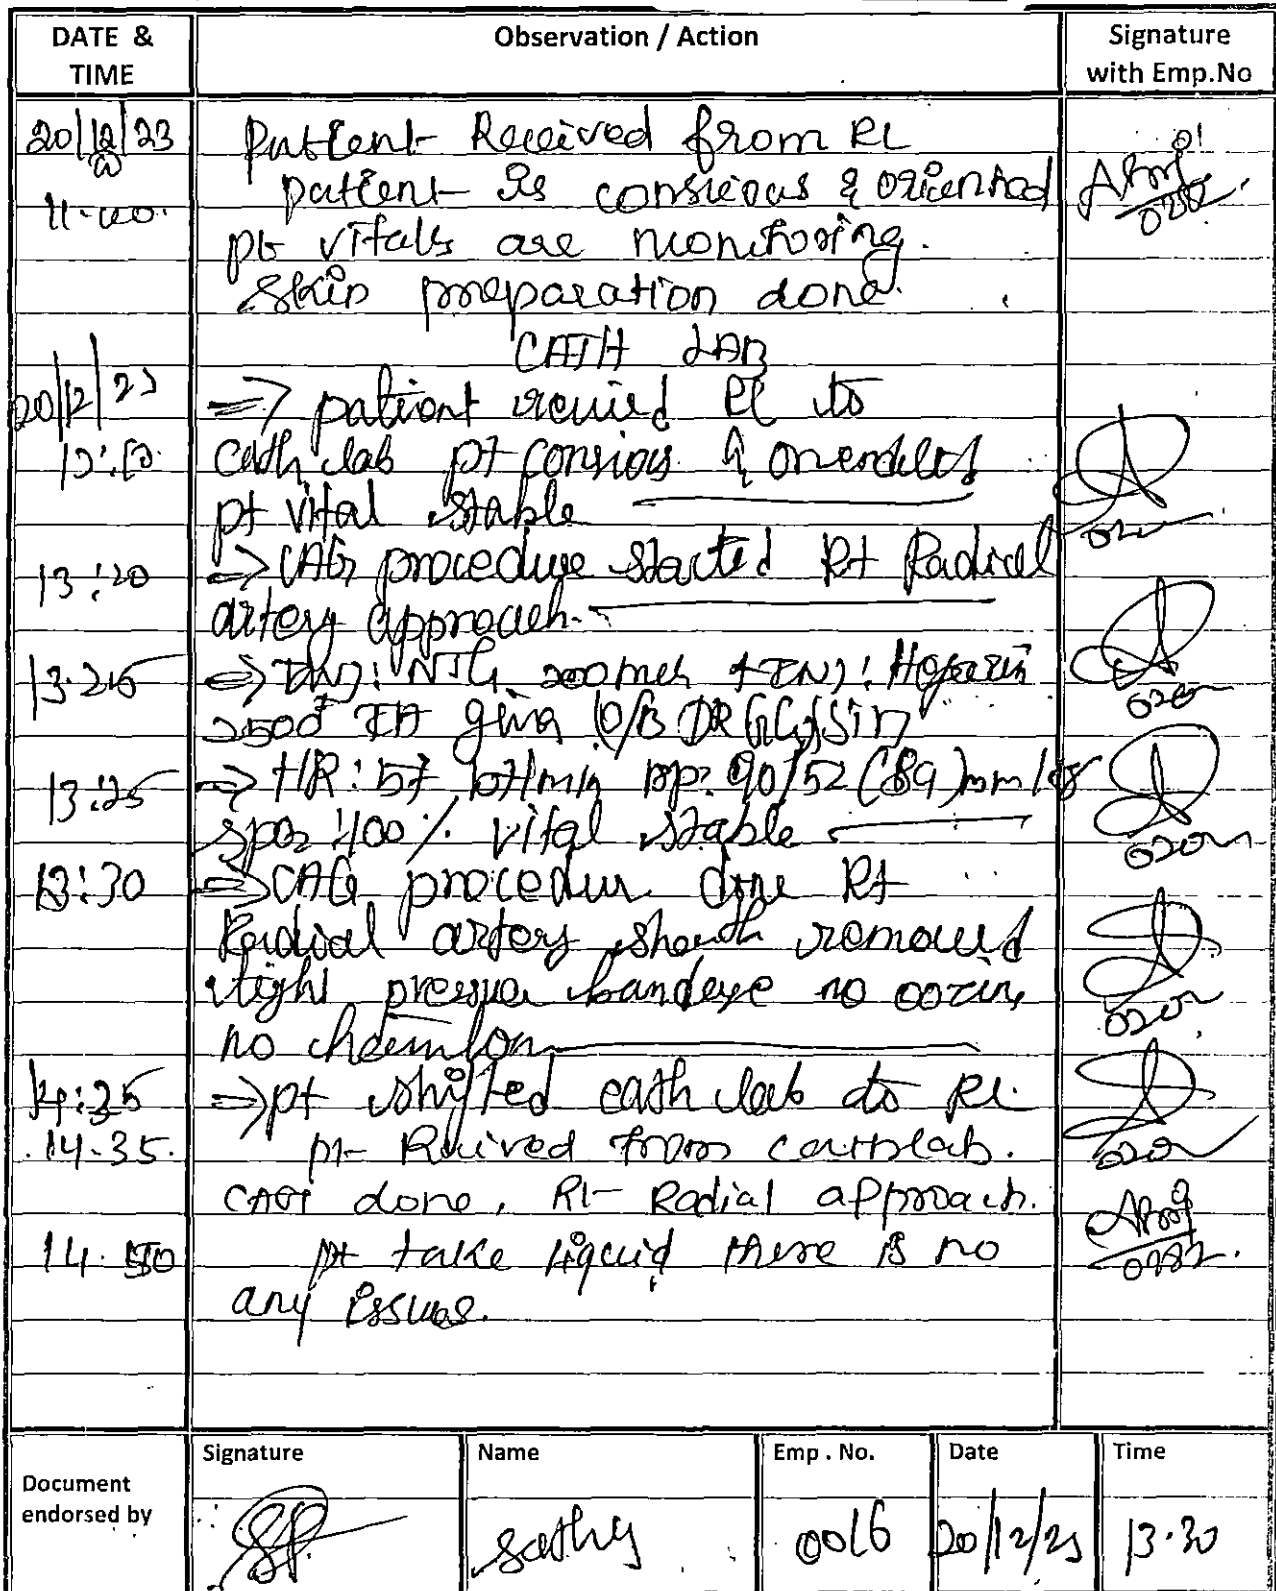 DATE & TIME
Observation / Action
Signature with Emp.No
20/12/23 Patient Received from RL
patient is consious & oriented
11-40. pt vitals are monitoring.
Skin preparation done.
CATH LAB
20/12/23 => patient received RL to
cath lab pt consious &
pt vital stable
13:20 => CAG procedure started Rt Radical
artery approach.
=> INJ: NTG 200mcg + INJ: Heparin
2500 IA given O/B DR
13:25 => HR: 57 bt/min BP: 90/52 (89) mm/Hg
SPO2: 100% vital stable
13:30 => CAG procedur done Rt
Radical artery sheath removed
tight pressure bandage no oozing
no
14:35 => pt shifted cath lab to RL.
14-35. pt- Recived from cathlab.
CAG done, Rt- Radial approach.
14.50 pt take liquid there is no
any issues.
Document endorsed by
Signature
Name
Emp . No.
Date
Time
Sathy
0016
20/12/23
13.30